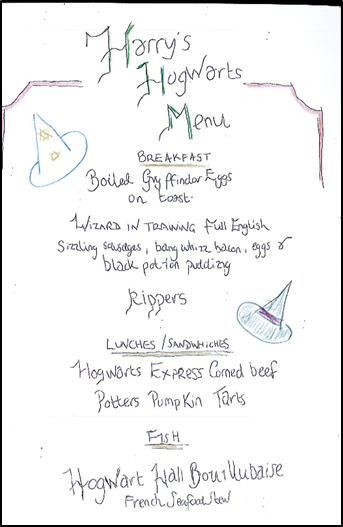 Harry's
Hogwarts
Menu
BREAKFAST
Boiled Gryffindor Eggs
on toast.
WIZARD IN TRAINING Full English
Sizzling sausages, bang whizz bacon, eggs &
black potion pudding
Kippers
LUNCHES/SANDWHICHES
Hogwarts Express Corned beef
Potters Pumpkin Tarts
FISH
Hogwart Hall Bouillubaise
French Seafood Stew